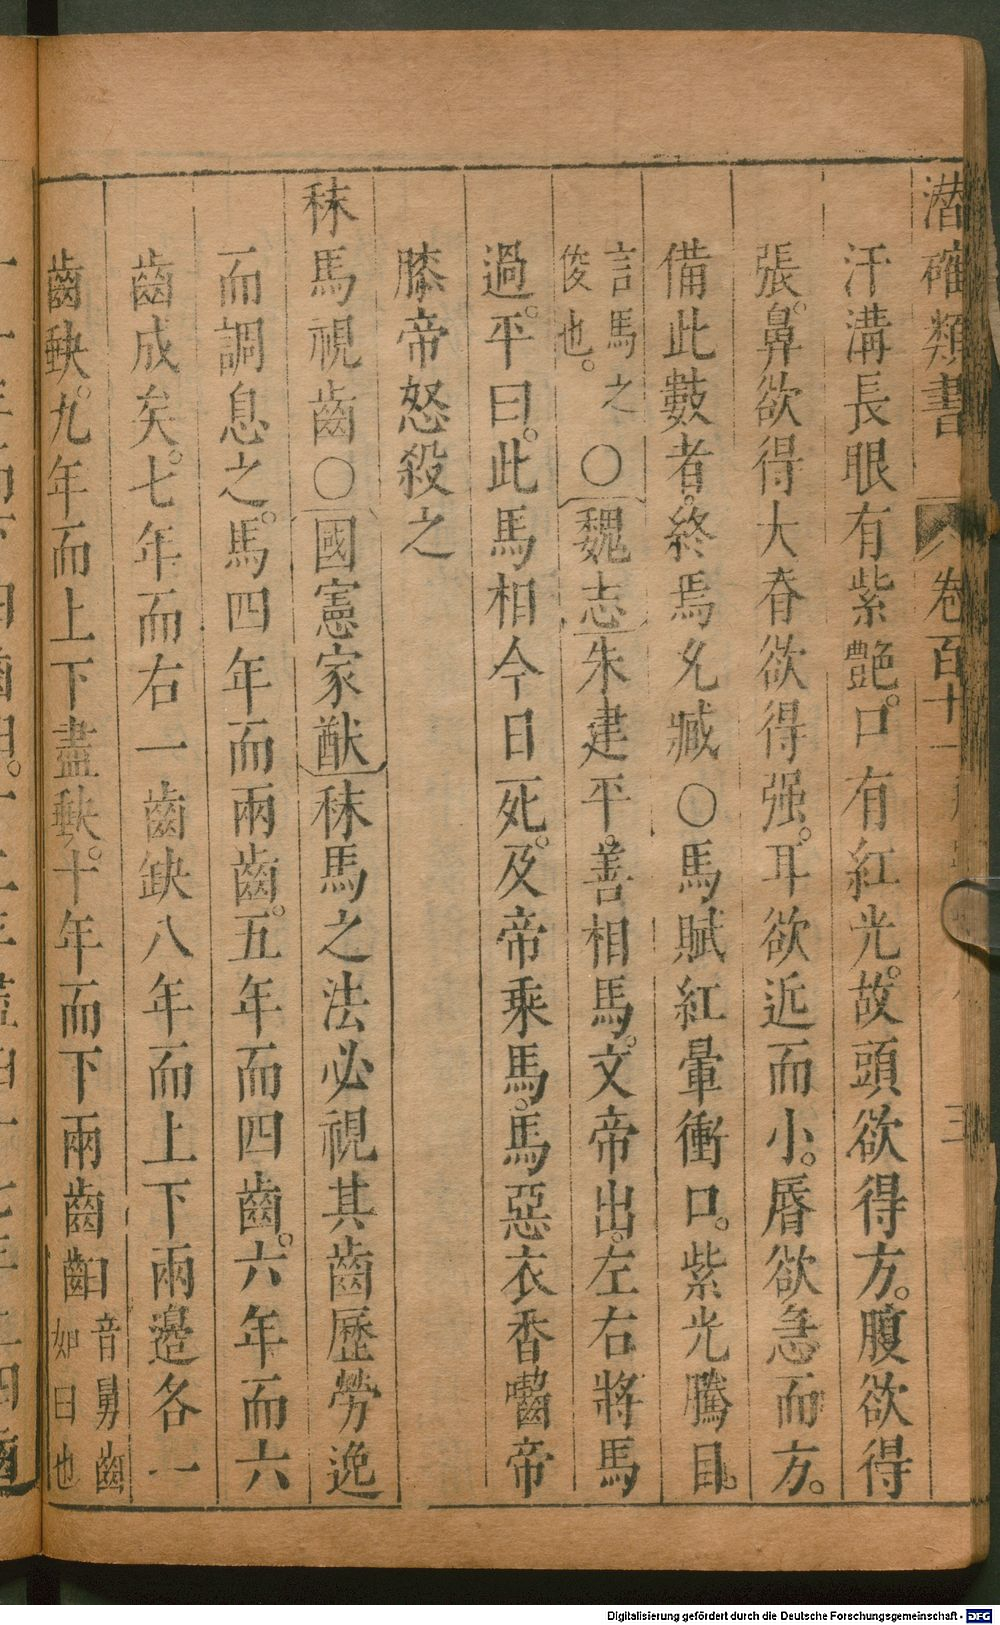 潛確類書 卷百十一
汗溝長眼有紫艷。口有紅光。故頭欲得方。腹欲得
張。鼻欲得大脊欲得强。耳欲近而小。脣欲急而方。
備此數者。終焉允臧○馬賦紅暈衝口。紫光騰目。
言馬之俊也。○魏志朱建平。善相馬。文帝出。左右將馬
過。平曰。此馬相今日死。及帝乘馬。馬惡衣香嚙帝
膝帝怒殺之
秣馬視齒○國憲家猷秣馬之法必視其齒歷勞逸
而調息之。馬四年而兩齒。五年而四齒。六年而六
齒成矣。七年而右一齒缺八年而上下兩邊各一
齒缺。九年而上下盡缺。十年而下兩齒臼音舅齒如臼也
Digitalisierung gefördert durch die Deutsche Forschungsgemeinschaft - DFG